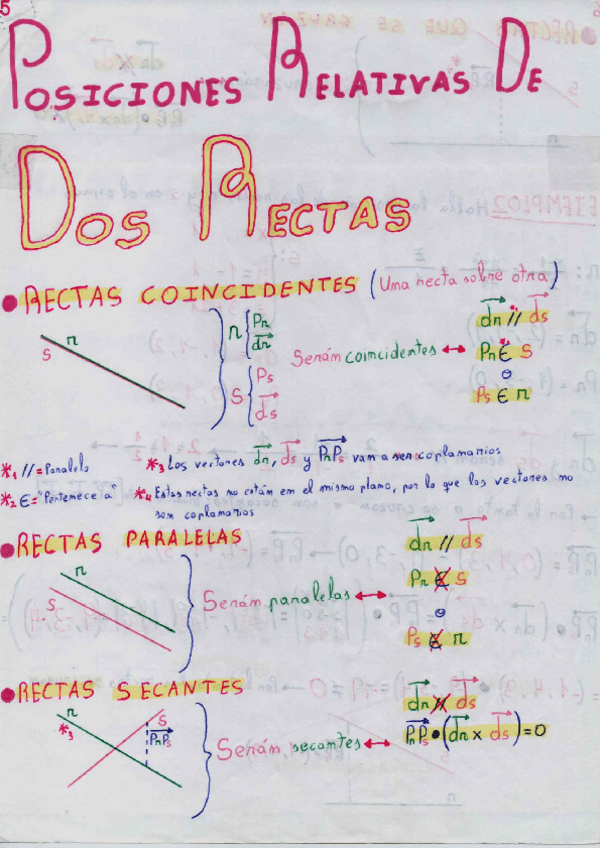 5
POSICIONES RELATIVAS DE
DOS RECTAS
● RECTAS COINCIDENTES (Una recta sobre otra)
S r
r { Pr
dr
S { Ps
ds
Serán coincidentes ↔
dr //*1 ds
Pr ∈*2 S
o
Ps ∈ r
*1 // = Paralelo
*2 ∈ = "Pertenece a"
*3 Los vectores dr, ds y PrPs van a ser coplanarios
*4 Estas rectas no están en el mismo plano, por lo que los vectores no
son coplanarios
● RECTAS PARALELAS
r
S
Serán paralelas ↔
dr // ds
Pr ∉ S
o
Ps ∉ r
● RECTAS SECANTES
r
S
*3
PrPs
Serán secantes ↔
dr ∦ ds
PrPs • (dr x ds) = 0